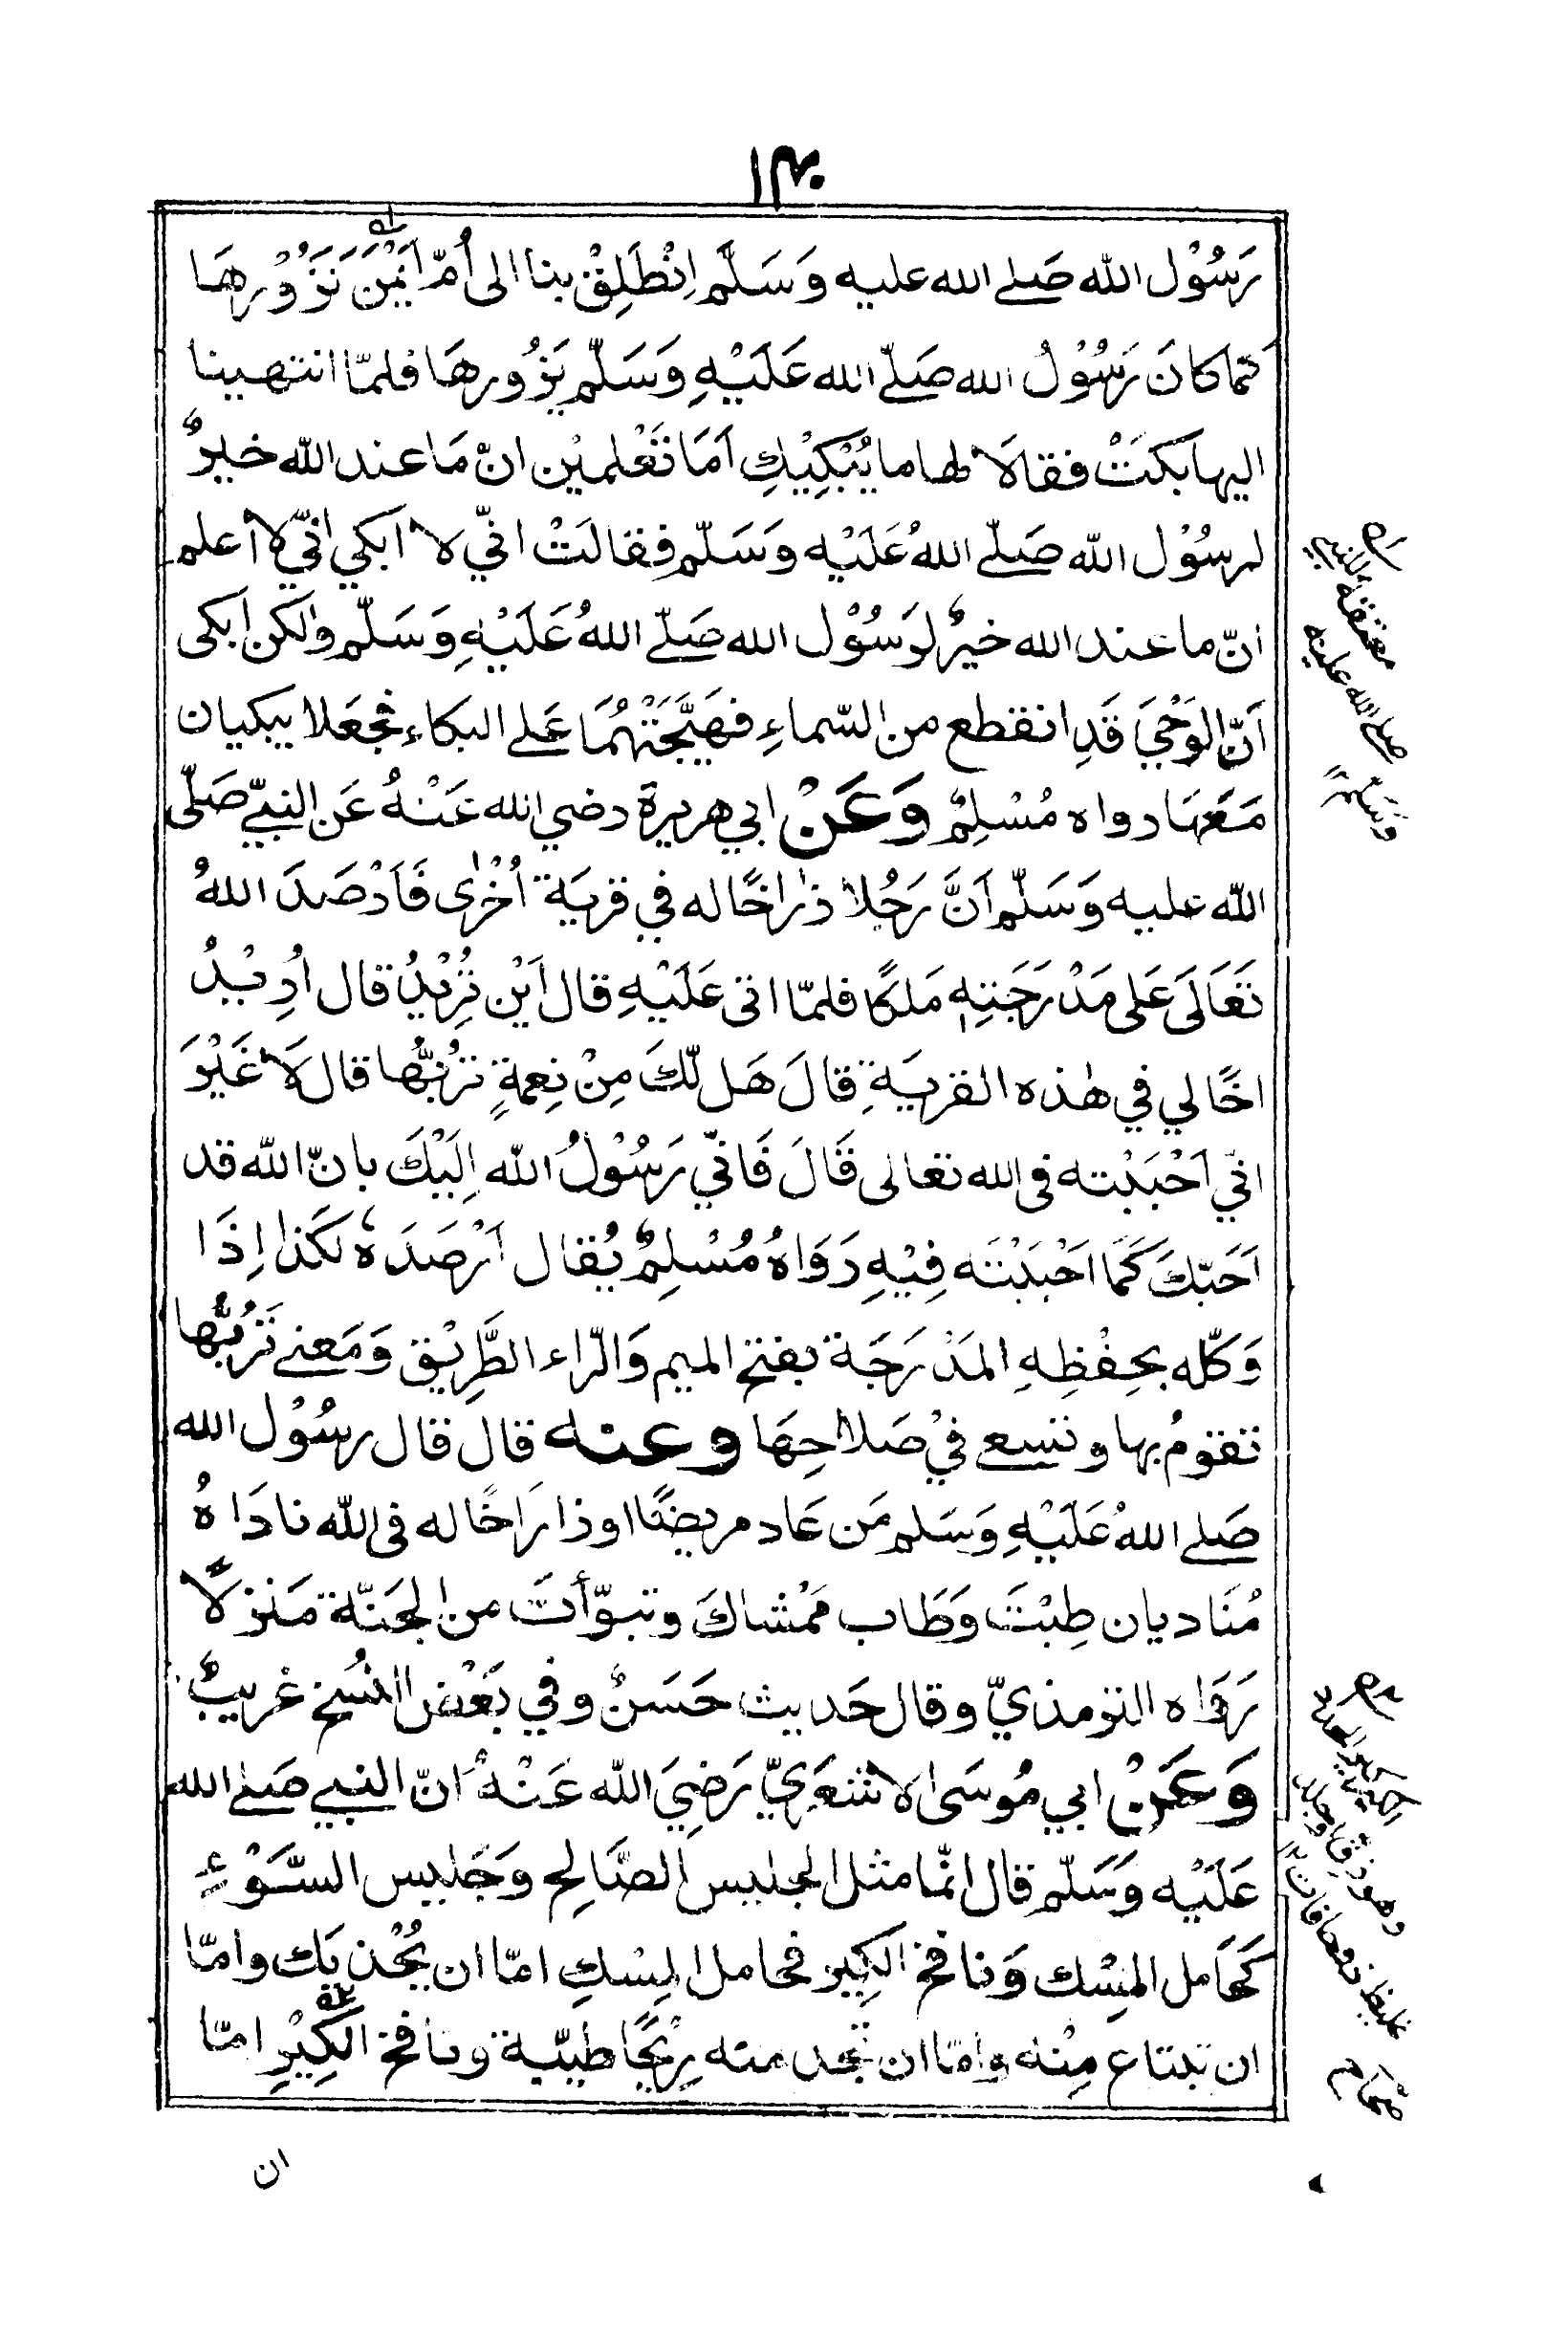 ١٤٠
رَسُوْل اللّه صَلے الله عليه وَسَلَّم اِنْطَلِقْ بنا الى اُمّ اَيْمَنَ نَزُوْرهَا
كَمَا كانَ رَسُوْلُ الله صَلّے الله عَلَيْهِ وَسَلّم يَزُورهَا فلمّا انتهينا
اليها بَكَتْ فقالَا لها ما يُبْكِيْكِ اَمَا تَعْلمِيْن انّ مَا عند اللّه خيرٌ
لرسُوْل اللّه صَلّے اللهُ عَلَيْه وَسَلّم فقالَتْ انّي لا ابكي انّي لا اعلم
انّ ما عند الله خيرٌ لرَسُوْل الله صَلّے اللهُ عَلَيْهِ وَسَلّم ولكن ابكى
اَنّ الوَحْيَ قَدِ انقطع من السّماءِ فهَيَّجَتْهُمَا عَلى البكاءِ فجَعَلا يبكيان
مَعَهَا رواه مُسْلِمٌ وَعَنْ ابي هريرة رضي الله عَنْهُ عَن النبيّ صَلّى
اللّه عليه وَسَلّم اَنَّ رَجُلا زار اخًا له في قريَة اُخْرٰى فَاَرْصَدَ اللهُ
تَعَالَى عَلى مَدْرَجَتِهِ مَلكًا فلمّا اتى عَلَيْهِ قال اَيْن تُرِيْدُ قال اُرِيْدُ
اخًا لي في هٰذه القريَةِ قالَ هَل لّكَ مِنْ نِعمةٍ تَرُبُّها قال لَا غَيْرَ
انّي اَحْبَبْته فى الله تعالى قَالَ فَانّي رَسُوْلُ اللّه اِلَيْكَ بانّ اللّه قد
اَحَبّكَ كَمَا اَحْبَبْتَه فِيْهِ رَوَاهُ مُسْلِمٌ يُقال اَرْصَدَهٗ لكَذا اِذَا
وَكّله بحِفْظِهِ المَدْرَجَة بفتح الميم وَالرّاء الطَّرِيْق وَمَعنے تَرُبُّها
تقومُ بها وتسعے فيْ صَلاحِهَا وعنه قال قال رسُوْل الله
صَلے اللهُ عَلَيْهِ وَسَلم مَن عَاد مريضًا او زارَ اخًا له فى اللّه نادَاهُ
مُنَاديان طِبْتَ وَطَاب مَمْشاكَ وتبوّأتَ من الجَنّة مَنزلًا
رَوَاه الترمذيّ وقال حَديث حَسَنٌ وفي بَعْض النُسَخ غريبٌ
وَعَنْ ابي مُوسَى الاشْعَرِيّ رَضِيَ اللّه عَنْهُ انّ النبي صَلے الله
عَلَيْه وَسَلّم قال انّمَا مثل الجليس الصَّالِح وَجَليس السَّوْءِ
كَحَامل المِسْك وَنافخ الكِيْر فحامل المِسْكِ امّا ان يُحْذيَك وامّا
ان تبتاع مِنْه وامّا ان تجد منه رِيْحًا طيّبة ونافخ الكِيْرِ امّا
ان
معتقة للنبي
صلى الله عليه
وسَلم
وهو زق او جلد
غليظ ذو حافات